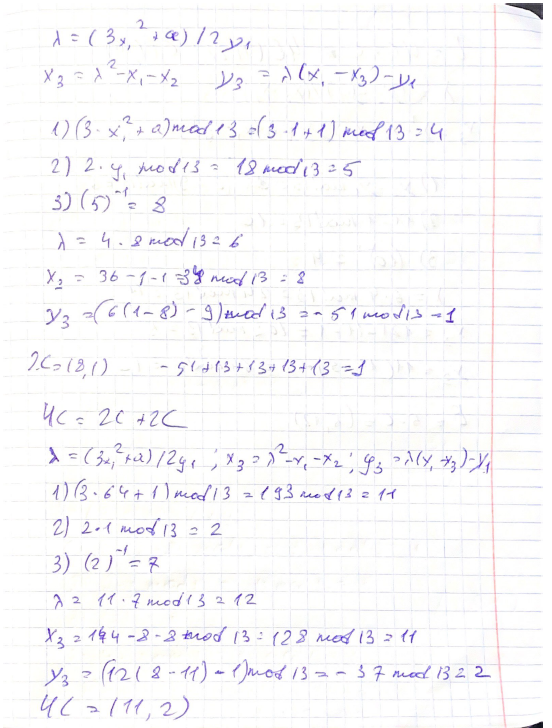 λ = (3x₁² + a) / 2y₁
x₃ = λ² - x₁ - x₂ y₃ = λ(x₁ - x₃) - y₁
1) (3 · x₁² + a) mod 13 = (3 · 1 + 1) mod 13 = 4
2) 2 · y₁ mod 13 = 18 mod 13 = 5
3) (5)⁻¹ = 8
λ = 4 · 8 mod 13 = 6
x₂ = 36 - 1 - 1 = 34 mod 13 = 8
y₃ = (6(1 - 8) - 9) mod 13 = - 51 mod 13 = 1
2C = (8, 1) - 51 + 13 + 13 + 13 + 13 = 1
4C = 2C + 2C
λ = (3x₁² + a) / 2y₁ ; x₃ = λ² - x₁ - x₂ ; y₃ = λ(x₁ - x₃) - y₁
1) (3 · 64 + 1) mod 13 = 193 mod 13 = 11
2) 2 · 1 mod 13 = 2
3) (2)⁻¹ = 7
λ = 11 · 7 mod 13 = 12
x₃ = 144 - 8 - 8 mod 13 = 128 mod 13 = 11
y₃ = (12(8 - 11) - 1) mod 13 = - 37 mod 13 = 2
4C = (11, 2)